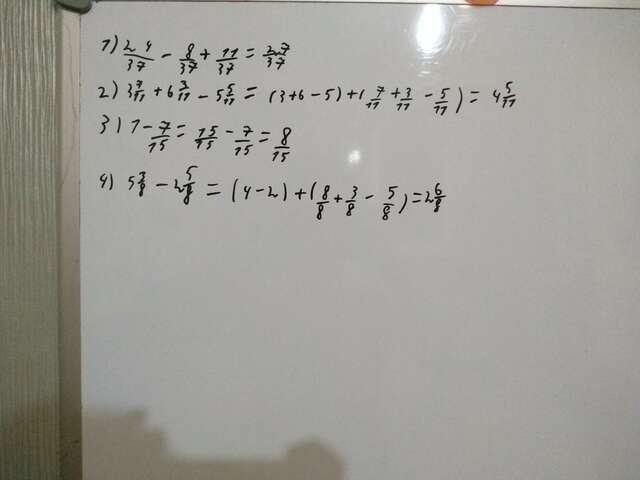 1) 24/37 - 8/37 + 11/37 = 27/37
2) 3 7/11 + 6 3/11 - 5 5/11 = (3+6-5)+(7/11 + 3/11 - 5/11) = 4 5/11
3) 1 - 7/15 = 15/15 - 7/15 = 8/15
4) 5 3/8 - 2 5/8 = (4-2)+(8/8 + 3/8 - 5/8) = 2 6/8